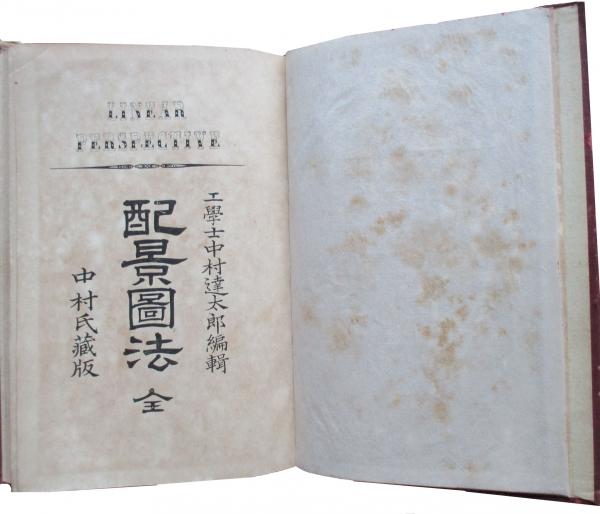 LINEAR
PERSPECTIVE
工學士中村達太郎編輯
配景圖法 全
中村氏藏版